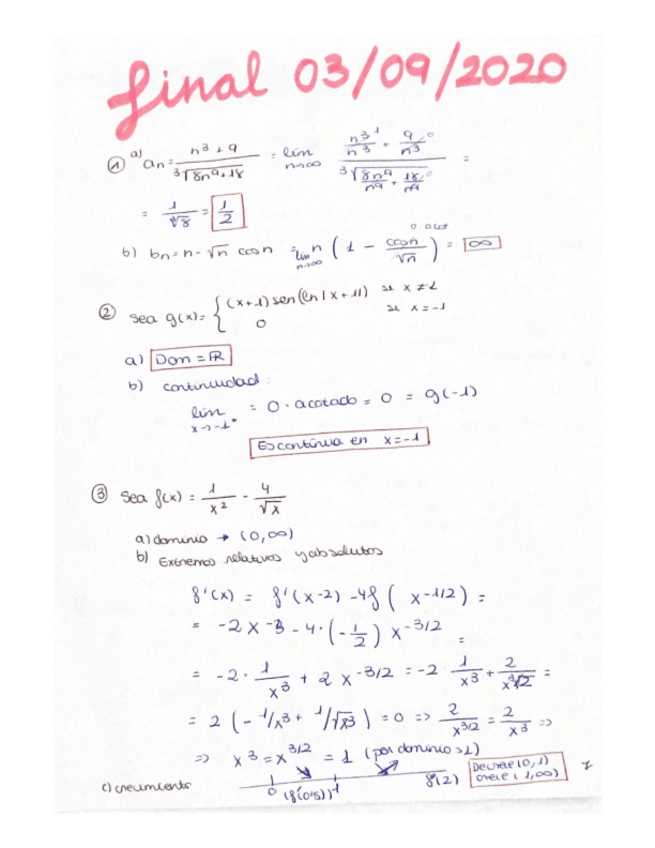 final 03/09/2020
① a) an = n³ + 9 / ³√8n⁹+18 = lim n→∞ n³/n³ + 9/n³ / ³√8n⁹/n⁹ + 18/n⁹ =
= 1/³√8 = 1/2
b) bn = n - √n cos n = lim n→∞ n (1 - cos n/√n) = ∞
② Sea g(x) = { (x+1) sen (ln |x+1|) si x ≠ -1
0 si x = -1
a) Dom = ℝ
b) continuidad:
lim x→-1⁺ = 0 · acotado = 0 = g(-1)
Es continua en x=-1
③ Sea f(x) = 1/x² - 4/√x
a) dominio → (0,∞)
b) Extremos relativos y absolutos
f'(x) = f'(x-2) - 4f (x-1/2) =
= -2x-3 - 4·(-1/2) x-3/2 =
= -2 · 1/x³ + 2 x-3/2 = -2 1/x³ + 2/x3/2 =
= 2 (-1/x³ + 1/√x³) = 0 => 2/x3/2 = 2/x³ =>
=> x³ = x3/2 = 1 (por dominio >1)
c) crecimiento 0 (f'(0'5)) 1 f'(2) Decrece (0, 1)
crece (1,∞)